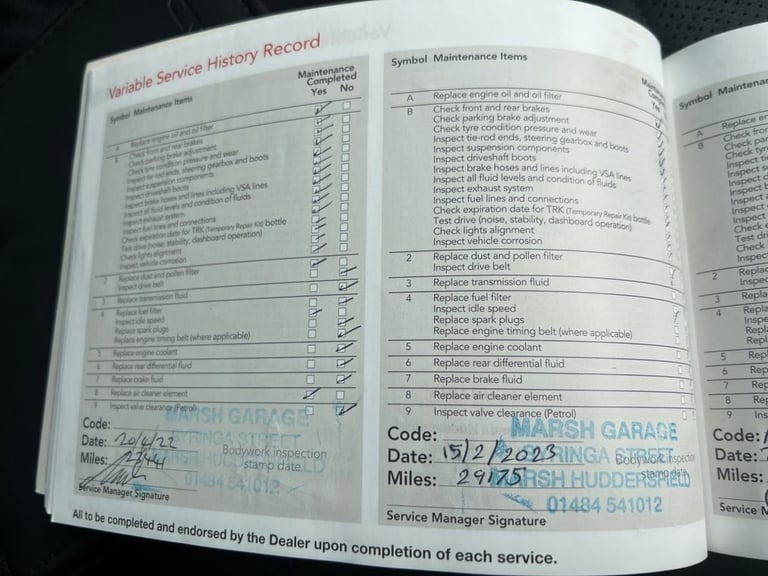 Variable Service History Record
Symbol Maintenance Items
Maintenance
Completed
Yes No
A Replace engine oil and oil filter
B Check front and rear brakes
Check parking brake adjustment
Check tyre condition pressure and wear
Inspect tie-rod ends, steering gearbox and boots
Inspect suspension components
Inspect driveshaft boots
Inspect brake hoses and lines including VSA lines
Inspect all fluid levels and condition of fluids
Inspect exhaust system
Inspect fuel lines and connections
Check expiration date for TRK (Temporary Repair Kit) bottle
Test drive (noise, stability, dashboard operation)
Check lights alignment
Inspect vehicle corrosion
2 Replace dust and pollen filter
Inspect drive belt
3 Replace transmission fluid
4 Replace fuel filter
Inspect idle speed
Replace spark plugs
Replace engine timing belt (where applicable)
5 Replace engine coolant
6 Replace rear differential fluid
7 Replace brake fluid
8 Replace air cleaner element
9 Inspect valve clearance (Petrol)
MARSH GARAGE
Code:
SYRINGA STREET
Date: 20/4/22
Bodywork inspection
Miles:
MARSH HUDDERSFIELD
stamp date
01484 541012
Service Manager Signature
Symbol Maintenance Items
A Replace engine oil and oil filter
B Check front and rear brakes
Check parking brake adjustment
Check tyre condition pressure and wear
Inspect tie-rod ends, steering gearbox and boots
Inspect suspension components
Inspect driveshaft boots
Inspect brake hoses and lines including VSA lines
Inspect all fluid levels and condition of fluids
Inspect exhaust system
Inspect fuel lines and connections
Check expiration date for TRK (Temporary Repair Kit) bottle
Test drive (noise, stability, dashboard operation)
Check lights alignment
Inspect vehicle corrosion
2 Replace dust and pollen filter
Inspect drive belt
3 Replace transmission fluid
4 Replace fuel filter
Inspect idle speed
Replace spark plugs
Replace engine timing belt (where applicable)
5 Replace engine coolant
6 Replace rear differential fluid
7 Replace brake fluid
8 Replace air cleaner element
9 Inspect valve clearance (Petrol)
MARSH GARAGE
Code:
Date: 15/2/2023
SYRINGA STREET
Bodywork inspection
Miles: 29175
MARSH HUDDERSFIELD
stamp date
01484 541012
Service Manager Signature
All to be completed and endorsed by the Dealer upon completion of each service.
Symbol
A
B
2
3
4
5
6
7
8
9
Code:
Date:
Miles: